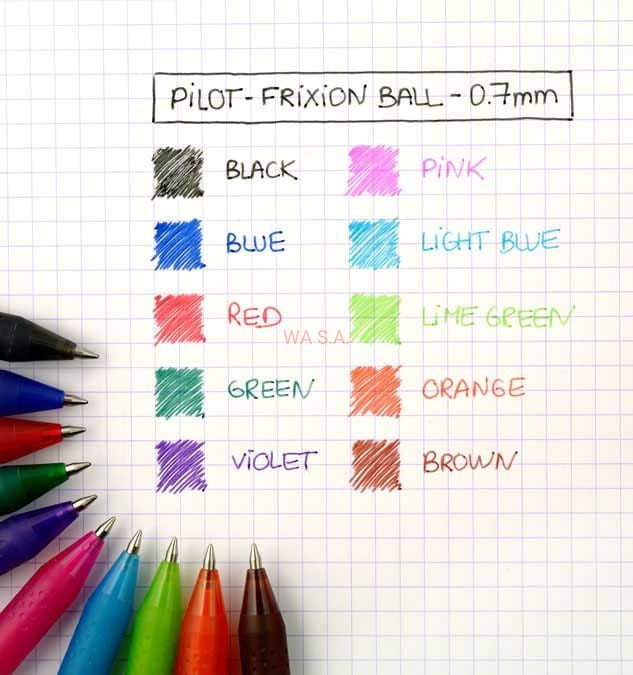 PILOT-FRIXION BALL - 0.7mm
BLACK
PINK
BLUE
LIGHT BLUE
RED
LIME GREEN
WA S.A.
GREEN
ORANGE
VIOLET
BROWN